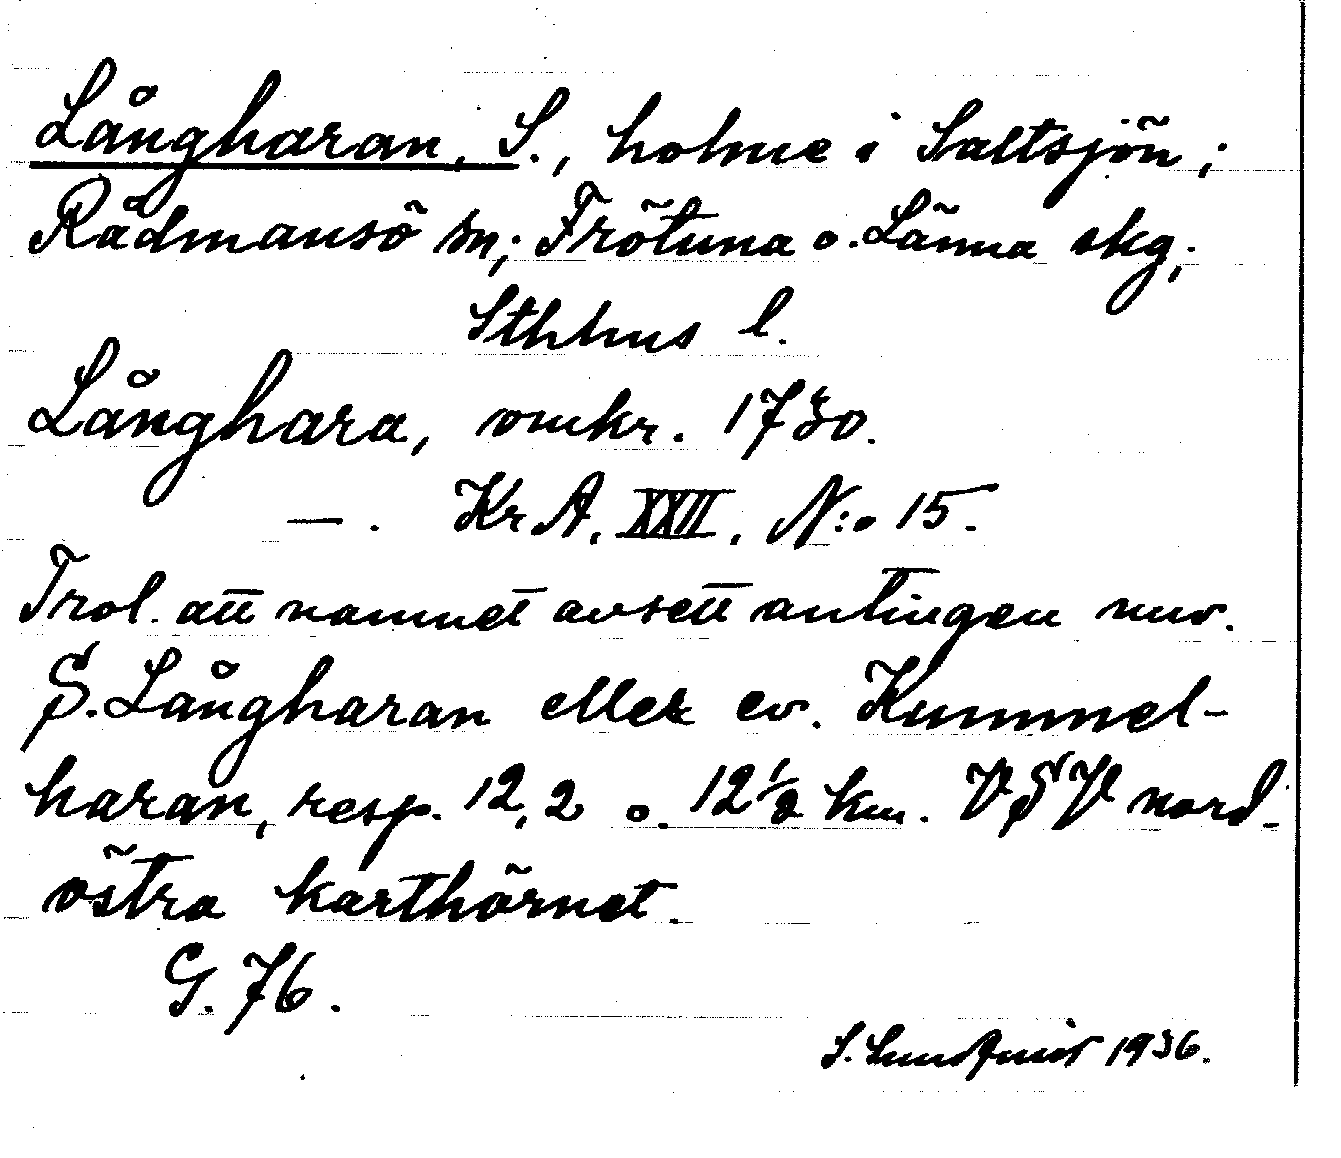 Långharan, S., holme i Saltsjön;
Rådmansö sn; Frötuna o. Länna skg;
Sthlms l.
Långhara, omkr. 1730.
—. Kr A. XXII. N:o 15.
Trol. att namnet avsett antingen nuv.
S. Långharan eller ev. Kummel-
haran, resp. 12,2 o. 12 1/2 km. VSV nord-
östra karthörnet.
G. 76.
S. Sundqvist 1936.